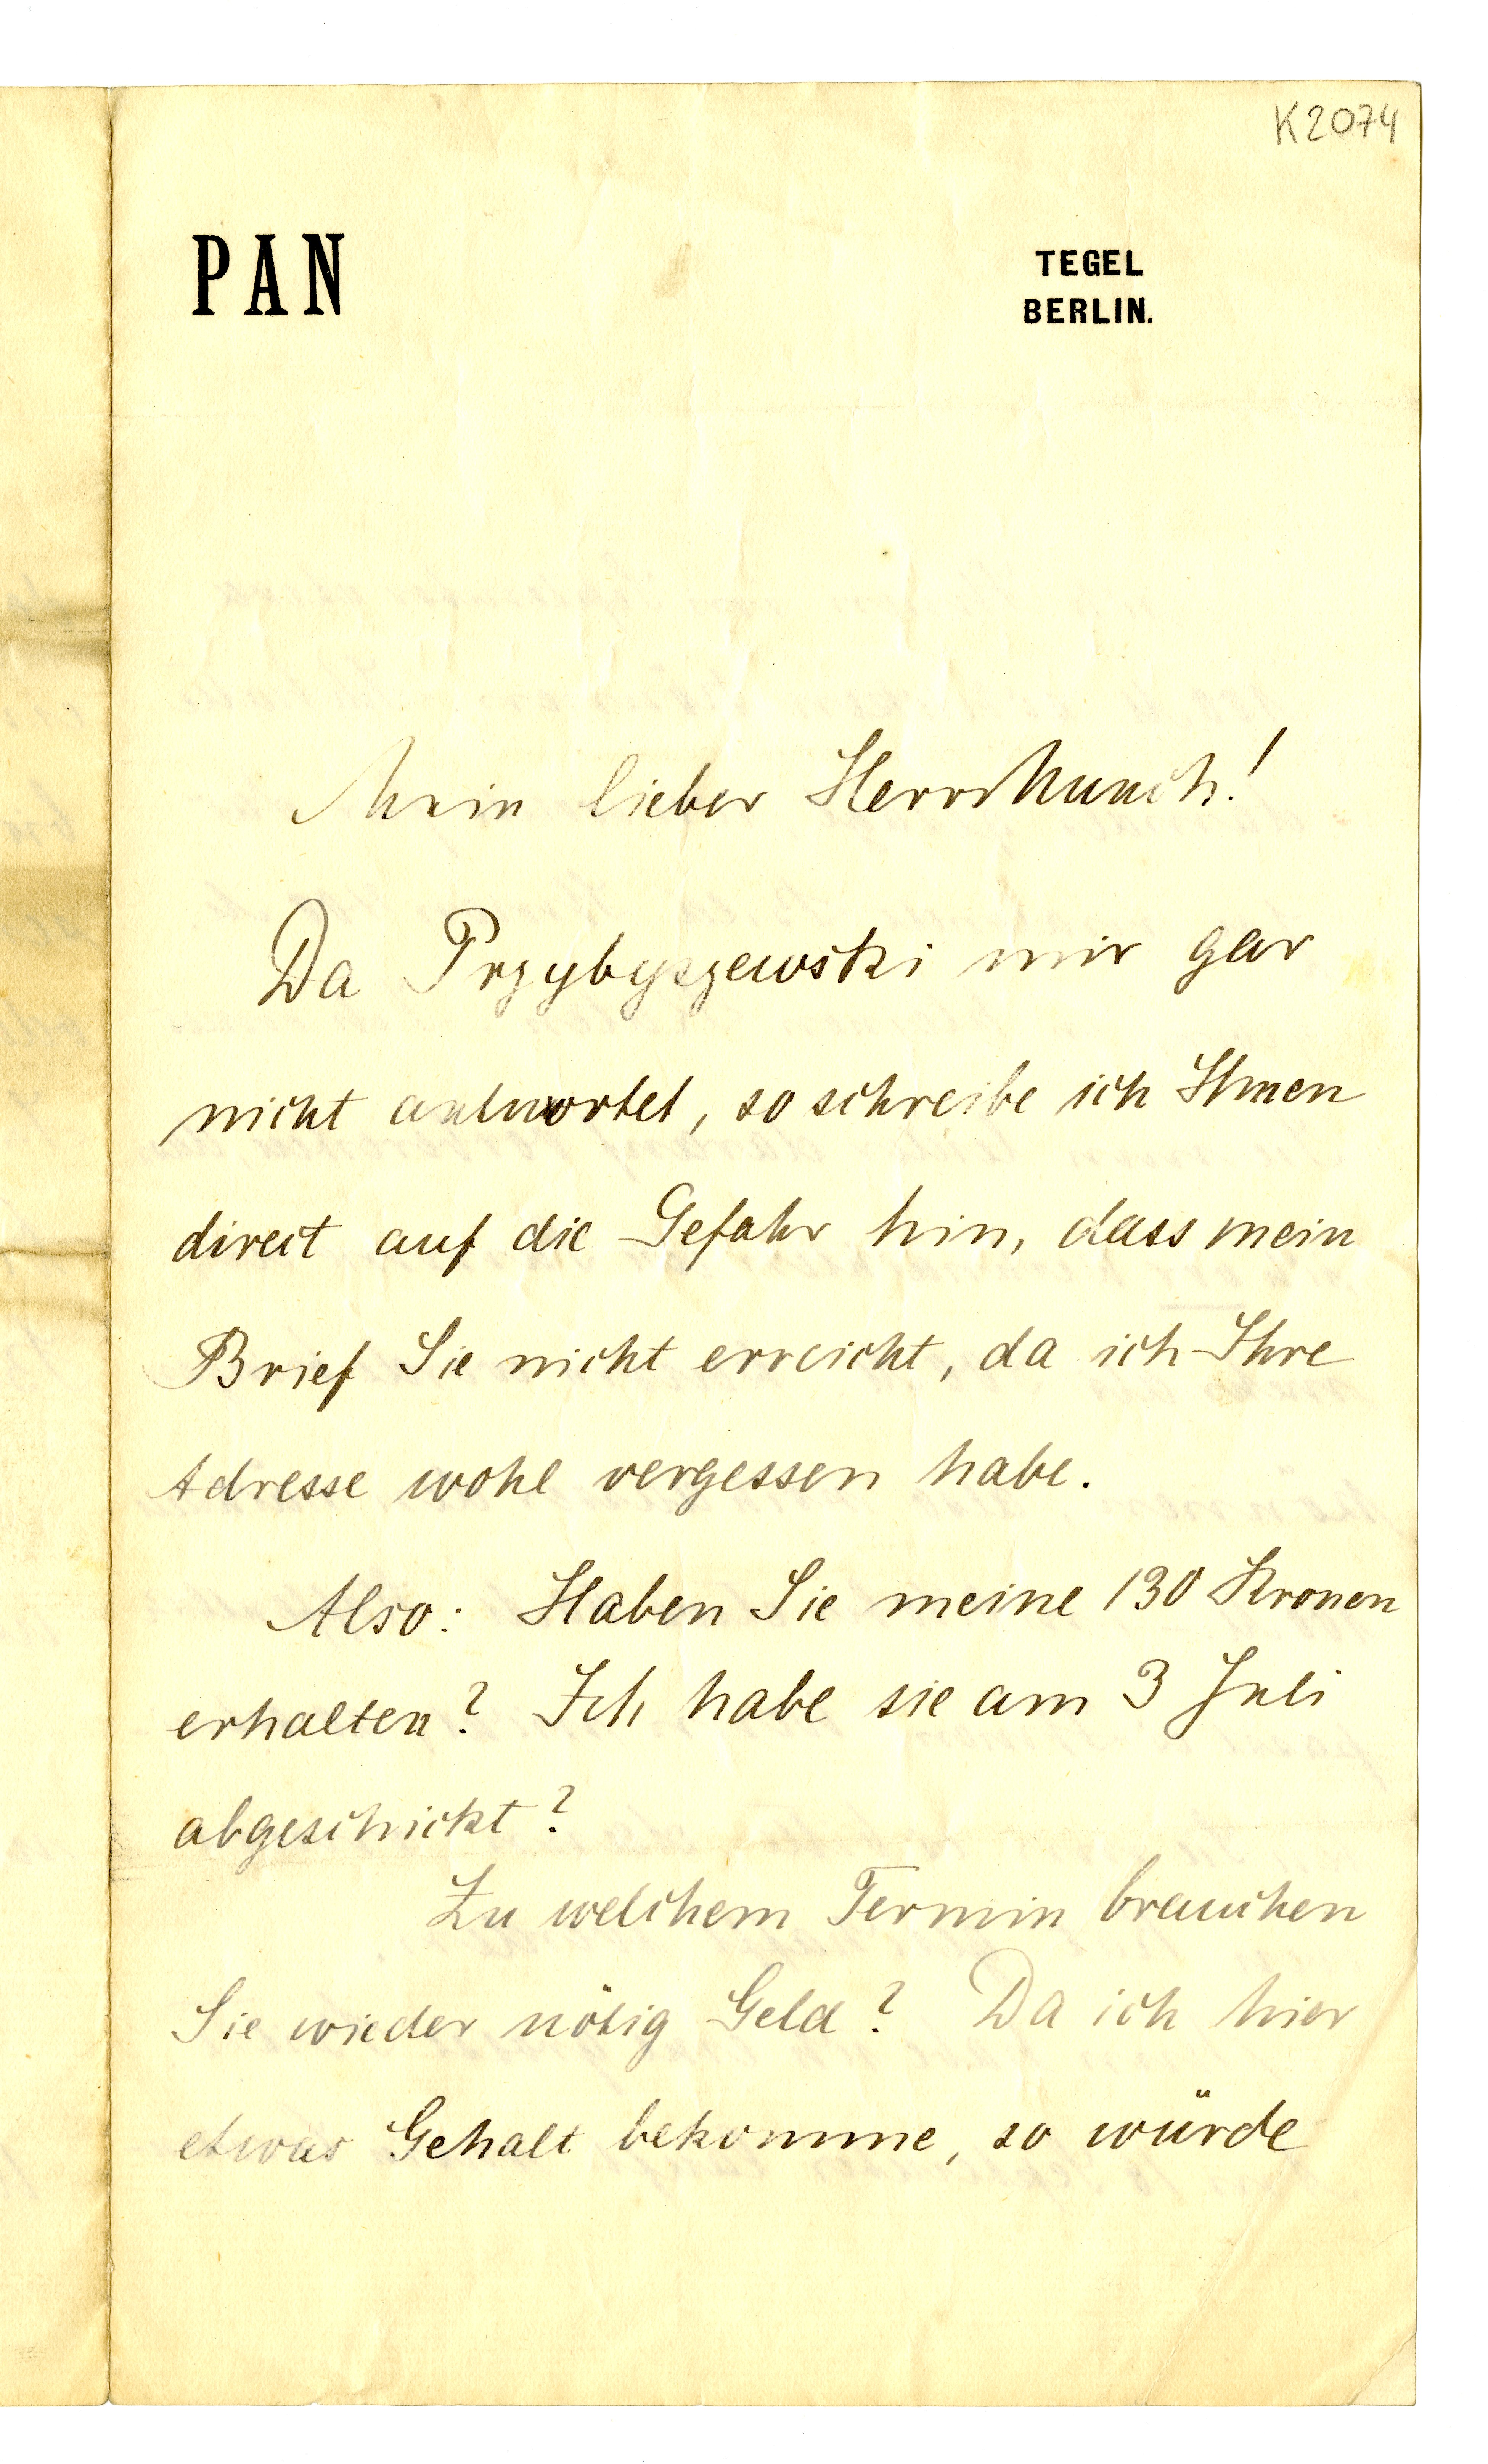 K2074
PAN
TEGEL
BERLIN.
Mein lieber Herr Munch!
Da Przybyszewski mir gar
nicht antwortet, so schreibe ich Ihnen
direct auf die Gefahr hin, dass mein
Brief Sie nicht erreicht, da ich Ihre
Adresse wohl vergessen habe.
Also: Haben Sie meine 130 Kronen
erhalten? Ich habe sie am 3 Juli
abgeschickt?
Zu welchem Termin brauchen
Sie wieder nötig Geld? Da ich hier
etwas Gehalt bekomme, so würde